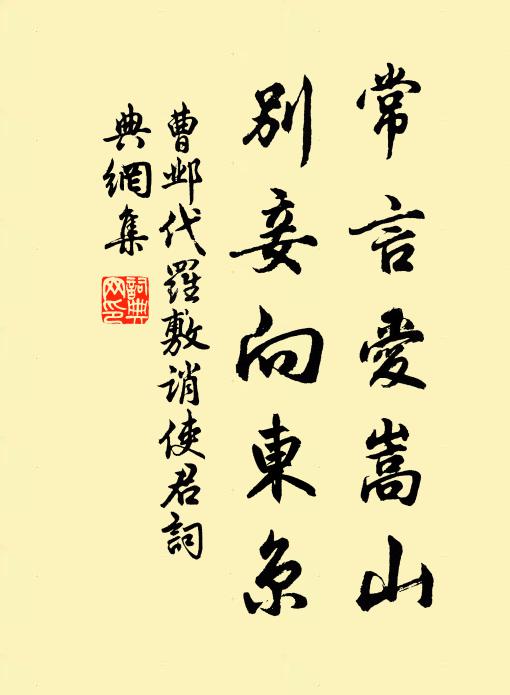 常言愛嵩山
別妾向東京
曹鄴代羅敷誚使君詞
典網集
詞典網印